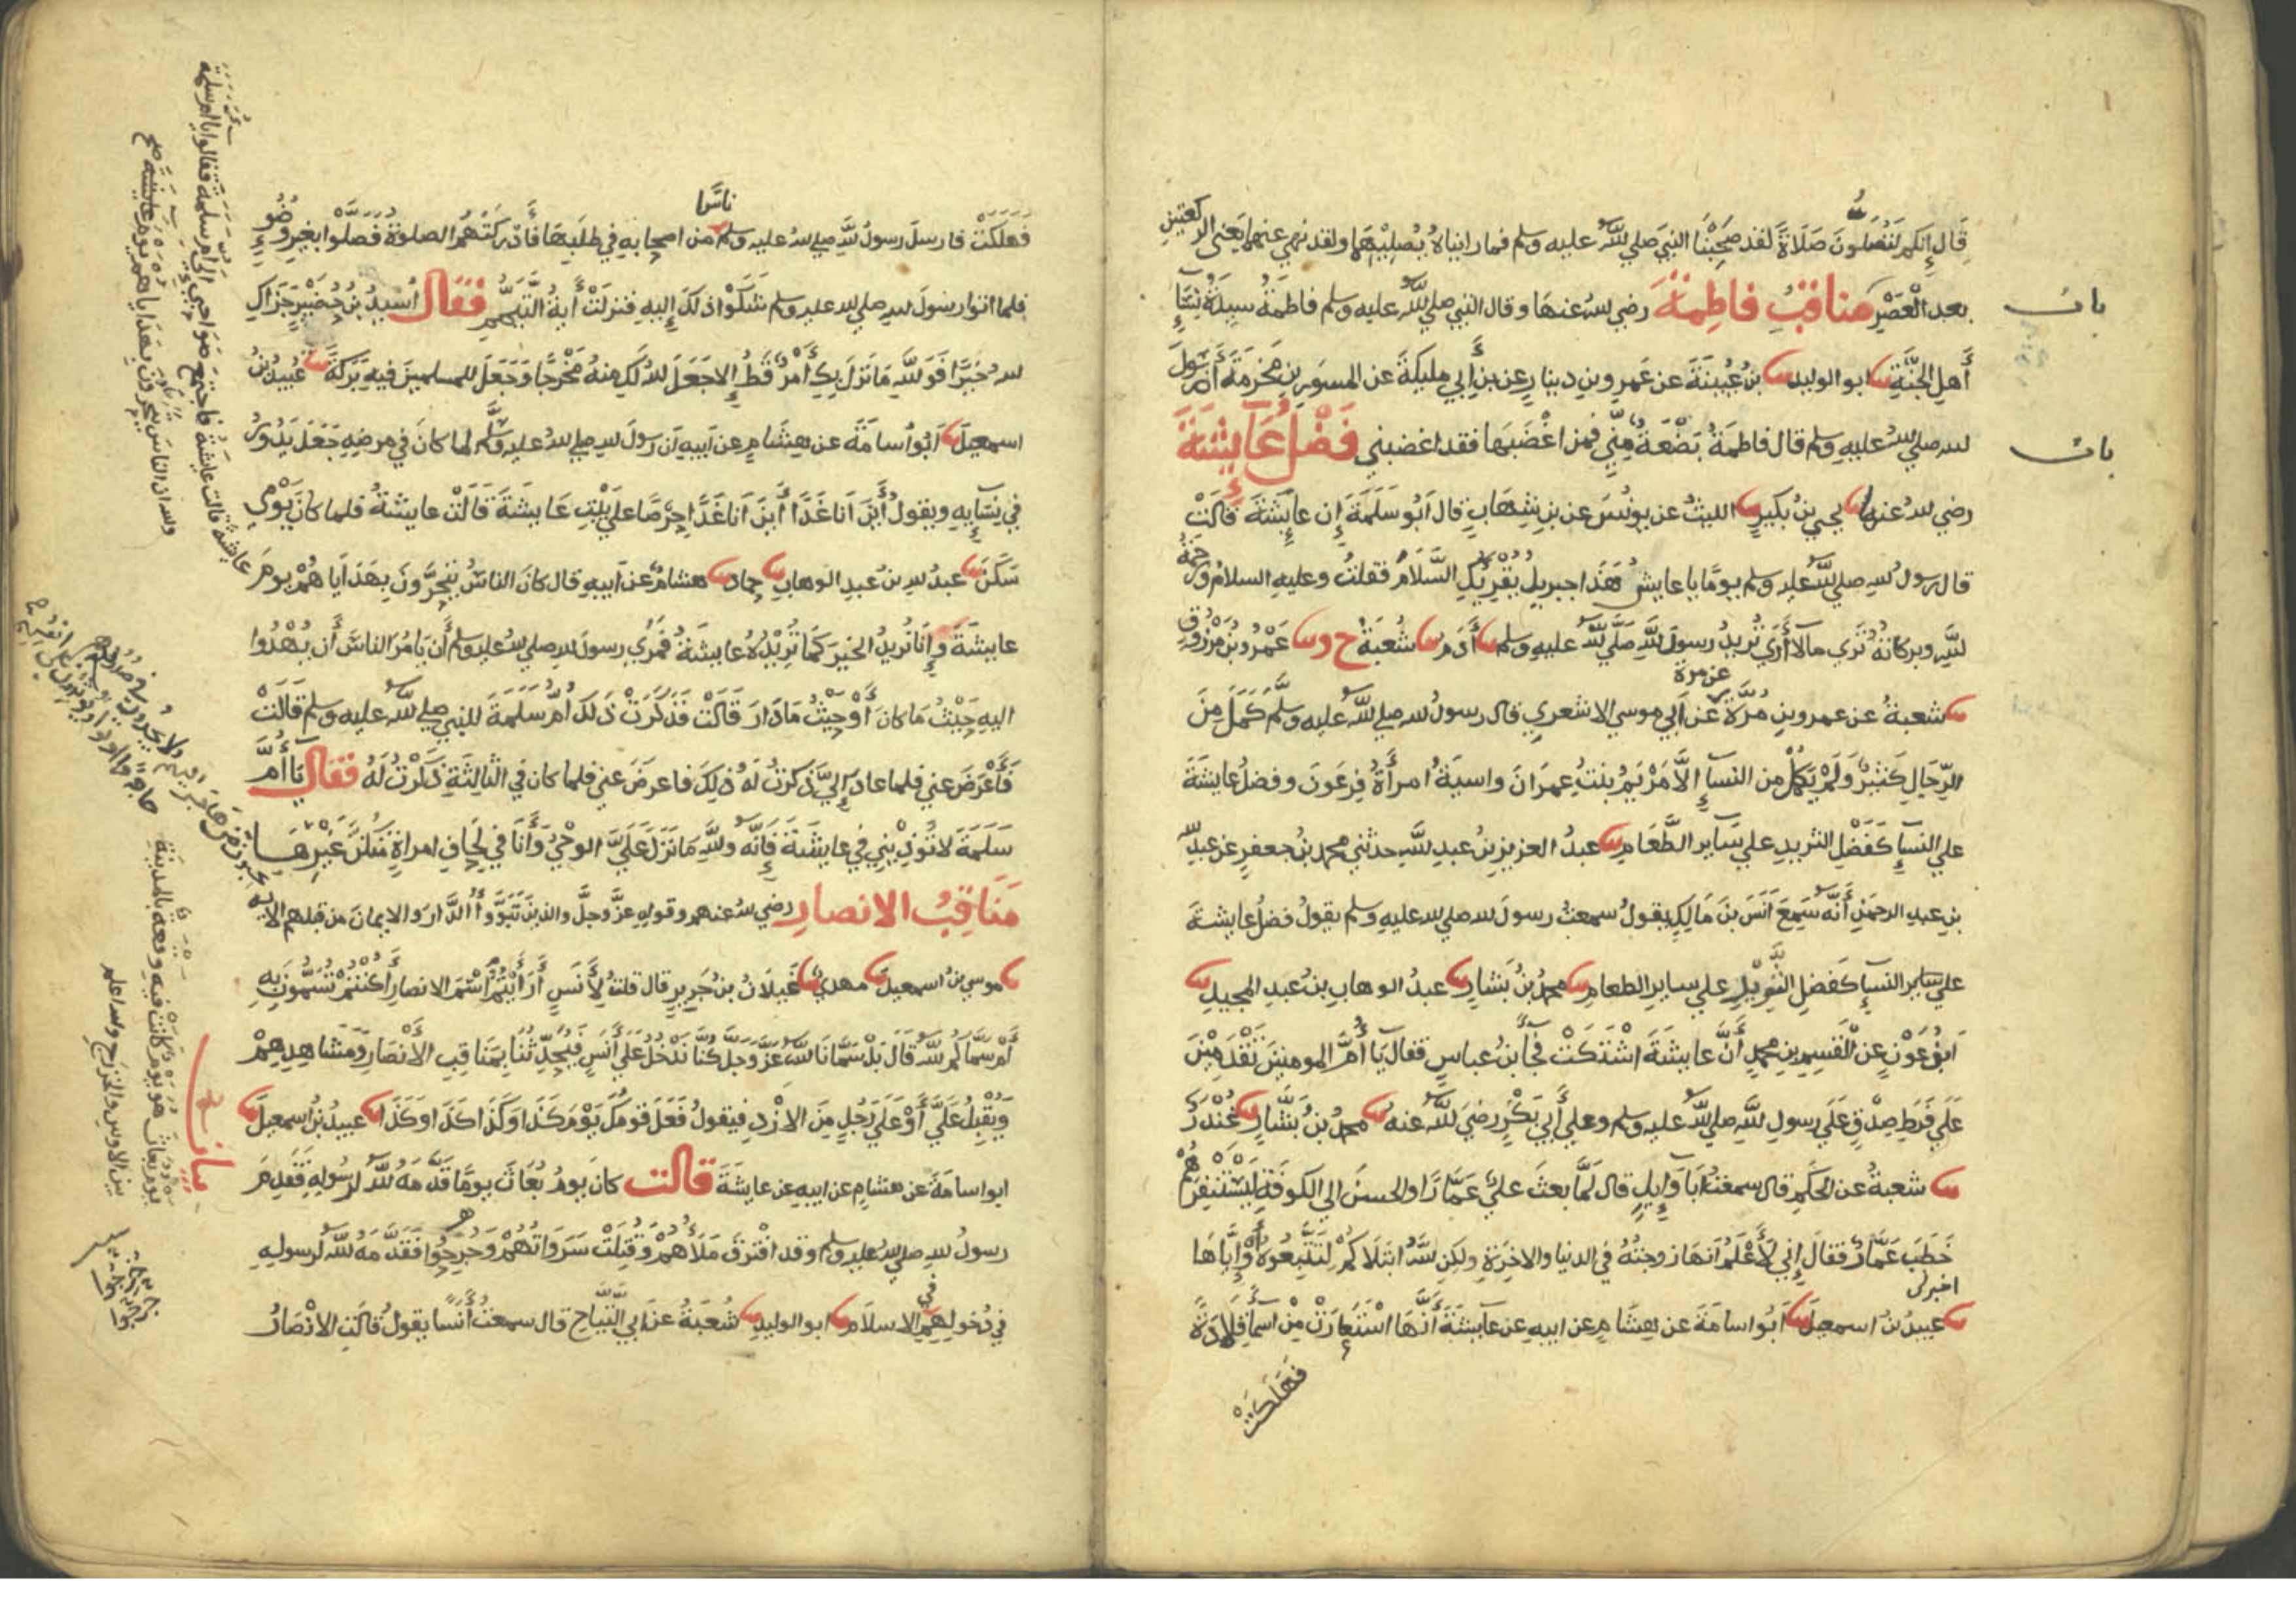 قَالَ إِنَّكُمْ لَتُصَلُّونَ صَلَاةً لقد صَحِبْنَا النبيَ صلي الله عليه وسلم فما رايناهُ يُصلِيْهَما ولقد نهي عنهما يَعْني الركعتين
باب
بعد الْعَصْرِ مناقبُ فاطِمةَ رضي الله عنهَا وقال النبي صلي الله عليه وسلم فاطمَةُ سيدةُ نِسَاءِ
أَهلِ الجنَّةِ ثنا ابو الوليد ثنا بنُ عُيَيْنَةَ عن عَمرِو بنِ دينارٍ عن بنِ أَبي مليكةَ عن المسوَرِ بنِ مَخرمَةَ أَنَّ رسُولَ
باب
الله صلي الله عليهِ وسلم قال فاطمَةُ بَضْعَةٌ مِنِّي فمن اغْضَبَها فقد اغضبني فَضْلُ عَآيِشَةَ
رضي الله عنها ثنا يحيي بنُ بُكيرٍ ثنا الليثُ عن يونُسَ عن بنِ شِهَابٍ قال اَبُو سَلَمَةَ إِن عايِشَةَ قَالَتْ
قال رسولُ الله صلي الله عليه وسلم يومًا يا عايش هَذَا جبريلُ يُقْرِئُكِ السَّلَامَ فقلتُ وعليهِ السلامُ ورَحمَةُ
اللهِ وبركاتُهُ تَرَي مالا أَرَي تُريدُ رسولَ اللهِ صَلَّي الله عليهِ وسلم ثنا أَدَم ثنا شُعْبَةُ ح وثنا عَمْرُو بنُ مَرْزُوقٍ
عن مرة
ثنا شعبةُ عن عمرو بنِ مُرَّةَ عن أَبي موسي الاشعري قال رسولُ الله صلي الله عليه وسلم كَمَلَ مِنَ
الرِّجَالِ كَثِيرٌ وَلَمْ يَكمُلْ من النسآءِ إِلَّا مَرْيَمُ بِنتُ عمرَانَ واسيَةُ امرأَةُ فِرعَونَ وفضلُ عايشَةَ
علي النسآءِ كَفَضْلِ الثريدِ علي سَآيرِ الطَّعَامِ ثنا عبدُ العزيزِ بنُ عبدِ الله حدثني محمدُ بنُ جعفرٍ عن عبدِ الله
بنِ عبدِ الرحمنِ أَنَّه سَمِعَ اَنَسَ بنَ مَالِكٍ يقولُ سمعتُ رسولَ الله صلي الله عليهِ وسلم يقولُ فضلُ عايشةَ
علي سَايرِ النسآءِ كَفَضلِ الثَّرِيْدِ علي سايرِ الطعامِ ثنا محمدُ بنُ بَشارٍ ثنا عبدُ الوهابِ بنُ عَبدِ المجيدِ ثنا
ابنُ عَوْنٍ عن الْقَسِمِ بنِ محمدٍ أَنَّ عايشةَ اشْتَكَتْ فجآءَ ابنُ عباسٍ فقال يَا أُمَّ المومنينَ تَقْدَمِيْنَ
عَلَي فَرَطِ صِدْقٍ عَلَي رسولِ اللهِ صلي الله عليه وسلم وعلي أَبي بَكْرٍ رضيَ الله عنه ثنا محمدُ بنُ بَشَّارٍ ثنا غُنْدَرٌ
ثنا شعبةُ عن الحكمِ قال سمعتُ ابَا وَآيِلٍ قال لَمَّا بعثَ عليٌ عَمَّارًا والحسنَ الي الكوفَةِ لِيَسْتَنْفِرَهُمْ
خَطَبَ عَمَّارٌ فقالَ إِني لَأَعْلَمُ اَنهَا زوجتُهُ في الدنيا والاخِرَةِ ولكِن الله ابْتَلَاكُمْ لِتَتَّبِعُوهُ أَوْ إِيَّاهَا
ثنا عبيدُ بنُ اسمعيلَ ثنا اَبُو اسامَةَ عن هِشَامٍ عن ابيهِ عن عآيشَةَ أَنَّهَا اسْتَعَارَتْ مِنْ اسمآءَ قِلَادَةً
فَهَلَكَتْ
ناسًا
فَهَلَكَتْ فارسلَ رسولُ الله صلي الله عليه وسلم من اصحابِهِ في طلَبِهَا فَأَدْرَكَتْهُمُ الصلوةُ فَصَلَّوْا بغيرِ وُضُوءٍ
فلما اتوا رسولَ الله صلي الله عليه وسلم شَكَوْا ذلكَ إِليهِ فنزلَتْ أيةُ التَّيَمُّمِ فقَالَ أُسيدُ بنُ حُضَيْرٍ جَزَاكِ
الله خَيرًا فَوَ اللهِ مَا نَزلَ بِكِ أَمْرٌ قَطُّ إِلا جَعَلَ الله لَكِ مِنهُ مَخْرجًا وَجَعَلَ للمسلمينَ فيهِ بَركةً ثنا عُبيدُ بنُ
اسمعيلَ ثنا اَبُو أُسامَةَ عن هِشَامٍ عن اَبيهِ اَن رسولَ الله صلي الله عليه وسلم لما كانَ في مرضِهِ جَعَلَ يَدُورُ
في نِسَآيِهِ ويقولُ أَيْنَ اَنَا غَدًا أَيْنَ اَنَا غَدًا حِرْصًا علي بَيْتِ عَايشَةَ قَالَتْ عايشةُ فلما كانَ يَوْمِي
سَكَنَ ثنا عبدُ الله بنُ عبدِ الوهابِ ثنا حماد ثنا هشامٌ عن اَبيهِ قال كانَ الناسُ يَتَحَرَّونَ بِهَدَايَا هُمْ يومَ
عايشَةَ وإِنَّا نُريدُ الخيرَ كَمَا تُرِيْدُهُ عايشَةُ فَمُرِي رسولَ الله صلي الله عليه وسلم أَن يَامُرَ الناسَ أَن يُهْدُوا
اليهِ حَيْثُ مَا كانَ أَوْ حَيْثُ مَا دَارَ قَالَتْ فَذَكَرَتْ ذلكَ أُمُّ سَلَمَةَ للنبي صلي الله عليه وسلم قَالَتْ
فَأَعْرَضَ عني فلما عادَ إِليَّ ذكرتُ لَهُ ذلِكَ فاعرضَ عني فلما كان في الثالِثَةِ ذَكَرْتُ لَهُ فقال يَا أُمَّ
سَلَمَةَ لا تُوذِيْنِي في عايشَةَ فَإِنَّه واللهِ مَا نَزَلَ عَلَيَّ الوحْيُ وَأَنَا في لِحَافِ امراةٍ مِنْكُنَّ غَيْرِهَا
مَنَاقِبُ الانصارِ رضي الله عنهم وقولِهِ عزَّ وجلَّ والذينَ تَبَوَّؤُا الدَّارَ والايمانَ من قبلهم الايه
ثنا موسي بنُ اسمعيلَ ثنا مهديُّ ثنا غَيلَانُ بنُ جَريرٍ قال قلتُ لِأَنَسٍ أَرَأَيْتُمُ اسْمَ الانصارِ أَكُنْتُمْ تُسَمُّونَ بِهِ
أَمْ سَمَّاكُم الله قَالَ بَلْ سَمَّانَا الله عَزَّ وَجَلَّ كُنَّا نَدْخُلُ عَلَي أَنَسٍ فيُحَدِّثُنَا بِمَنَاقِبِ الأَنْصَارِ وَمَشَاهِدِهِمْ
وَيُقْبِلُ عَلَيَّ أَوْ عَلَي رَجُلٍ مِنَ الازْدِ فيقولُ فَعَلَ قومُكَ يَوْمَ كَذَا وَكَذَا كَذَا وَكَذَا ثنا عبيدُ بنُ اسمعيلَ ثنا
ابو اسامَةَ عن هشامٍ عن ابيهِ عن عايشةَ قالت كانَ يومُ بُعَاثَ يومًا قَدَّمَهُ الله لِرسُولِهِ فَقَدِمَ
رسولُ الله صلي الله عليه وسلم وقد افْتَرقَ مَلَأُهُمْ وَقُتِلَتْ سَرَوَاتُهُمْ وَجُرِحُوا فَقَدَّمَهُ الله لرسولِهِ
في دُخولِهِم في الاسلَامِ ثنا ابو الوليدِ ثنا شُعبَةُ عن اَبي التَّيَّاحِ قال سمعتُ أَنَسًا يقولُ قَالَتِ الانْصَارُ
عايشة قالت عايشةُ فاجتمع صواحبي الي ام سلمة فقالوا يا ام سلمة
والله ان الناس يتحرون بهداياهم يوم عايشة
يوم بعاث هو يوم كانت فيه وقعة بالمدينة
بين الاوس والخزرج والله اعلم